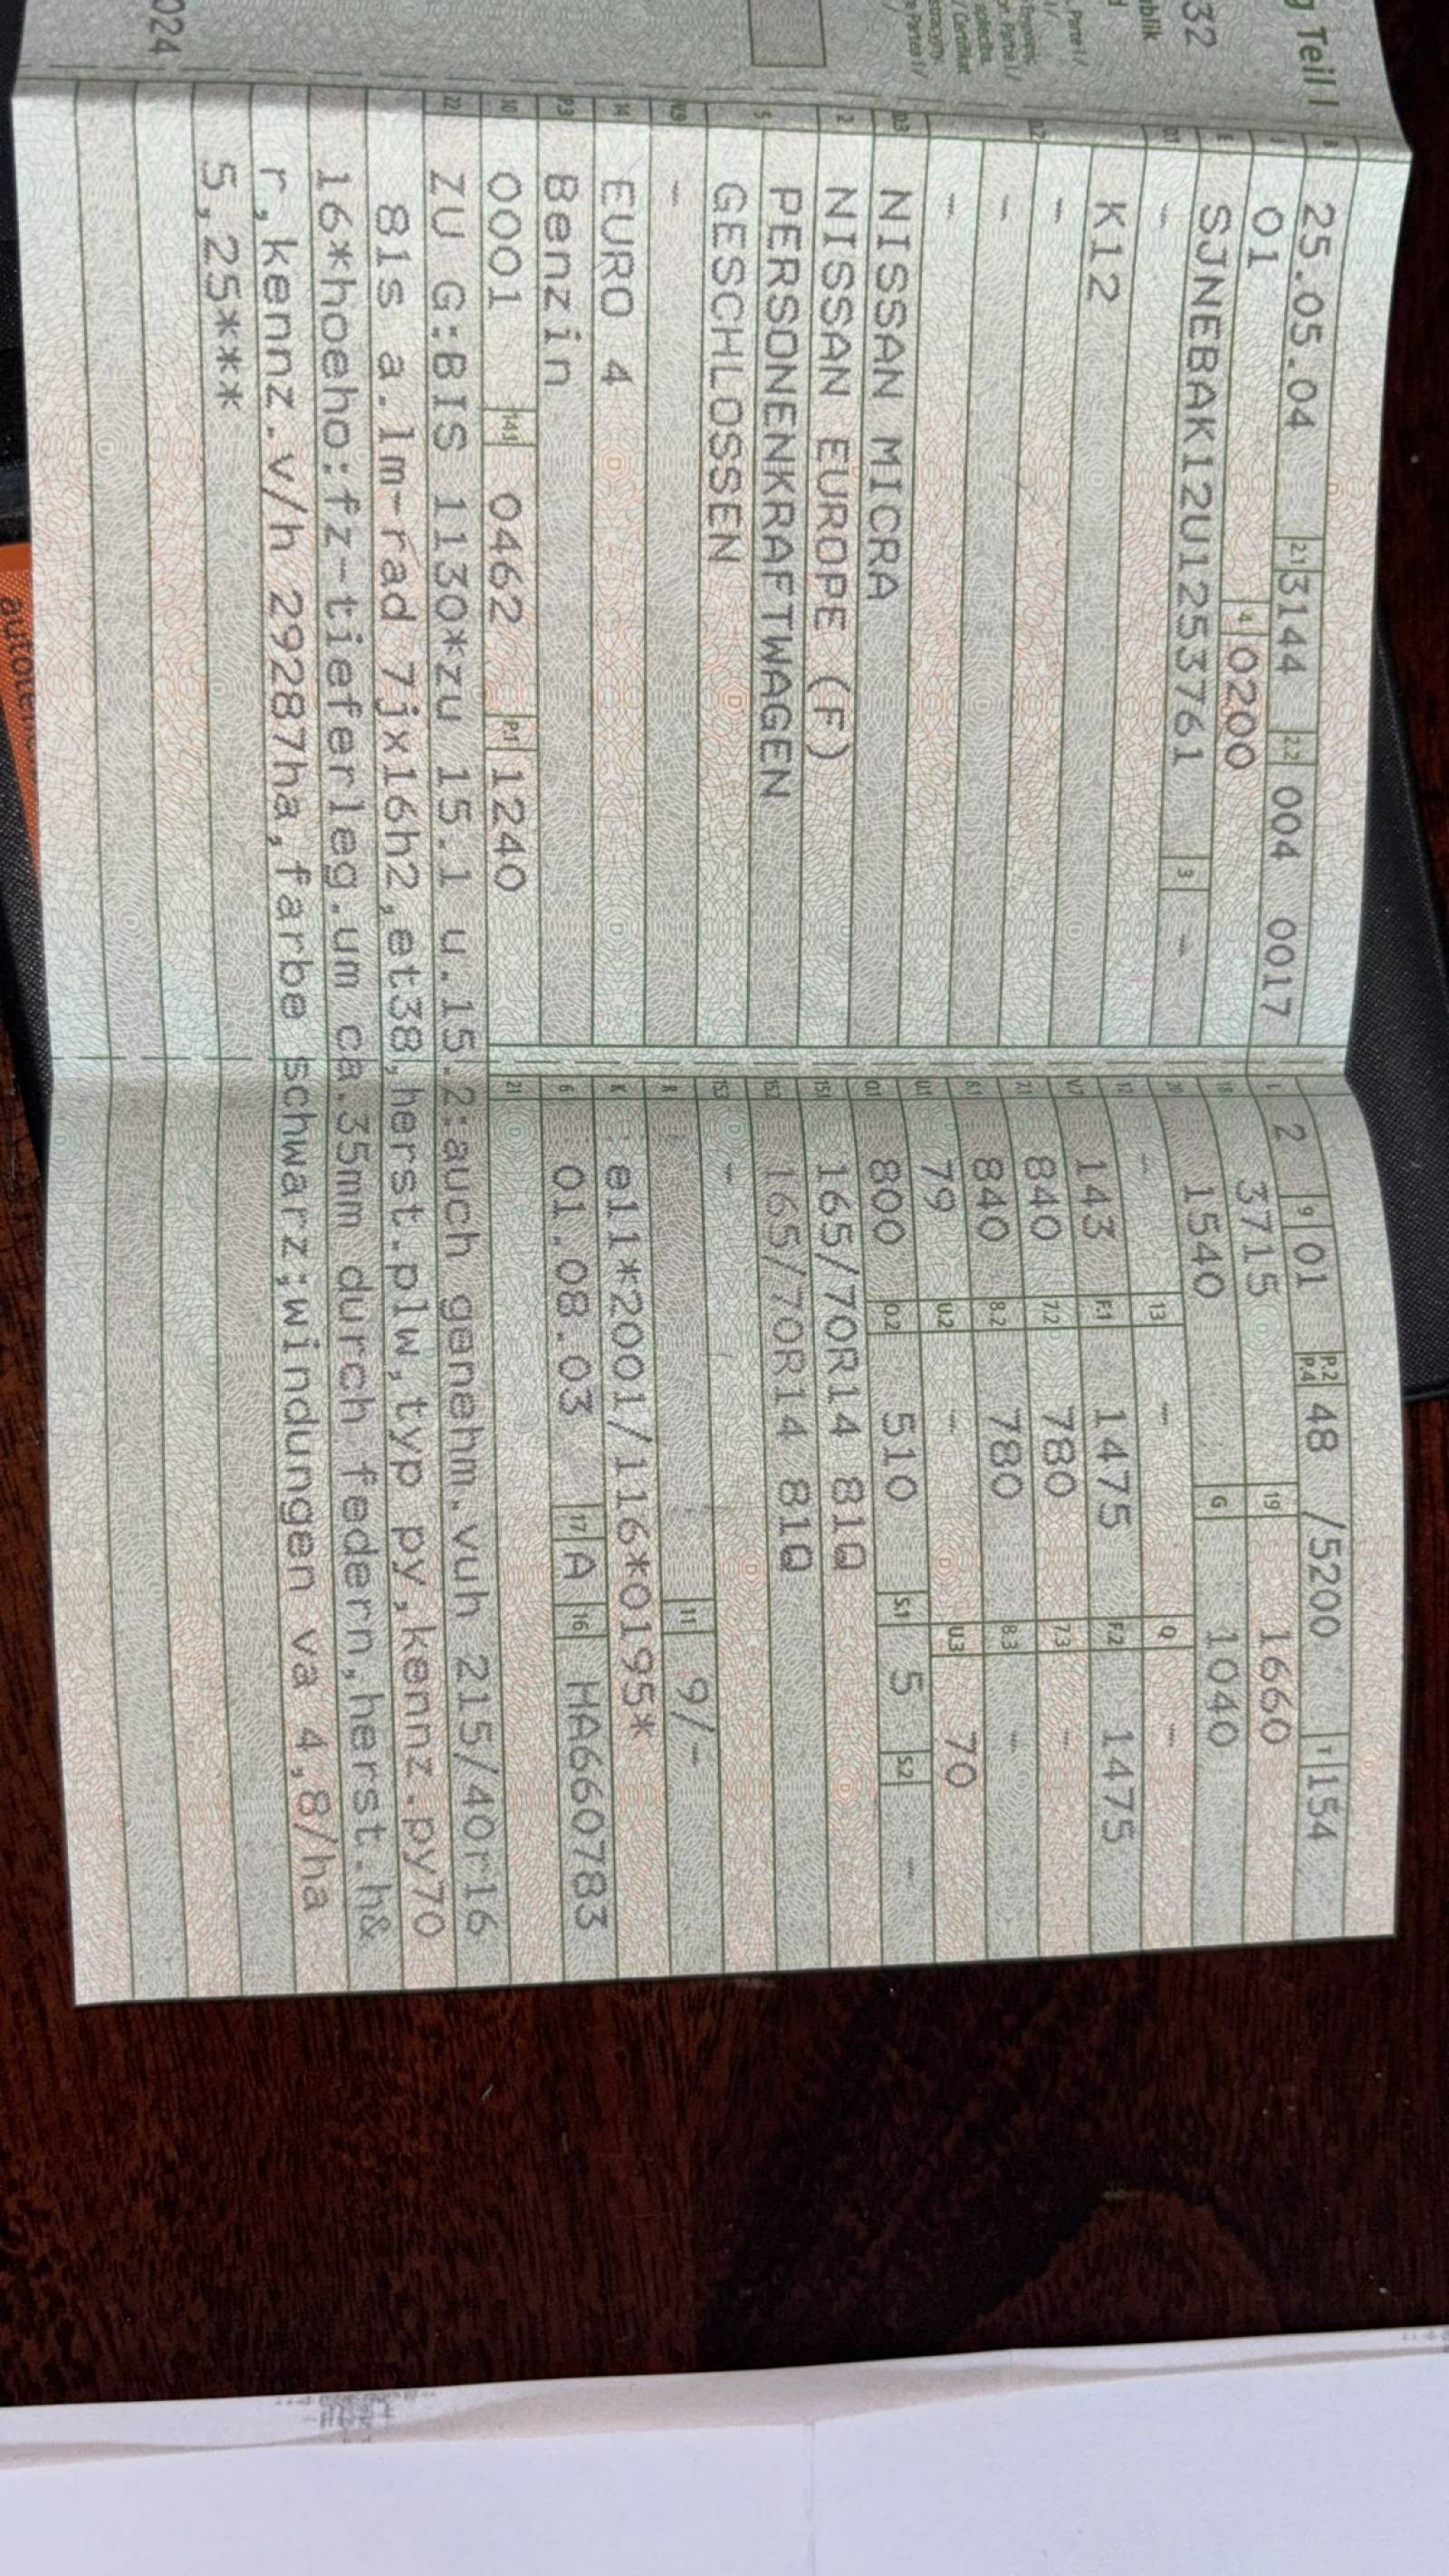 g Teil I
32
024
B 25.05.04 2.1 3144 2.2 004 0017
J 01 4 0200
E SJNEBAK12U1253761 3 -
D.1 -
K12
D.2 -
-
-
D.3 NISSAN MICRA
2 NISSAN EUROPE (F)
5 PERSONENKRAFTWAGEN
GESCHLOSSEN
V.9 -
14 EURO 4
P.3 Benzin
10 0001 14.1 0462 P.1 1240
L 2 9 01 P.2 P.4 48 /5200 T 154
18 3715 19 1660
20 1540 G 1040
12 - 13 - Q -
V.7 143 F.1 1475 F.2 1475
7.1 840 7.2 780 7.3 -
8.1 840 8.2 780 8.3 -
U.1 79 U.2 - U.3 70
O.1 800 O.2 510 S.1 5 S.2 -
15.1 165/70R14 81Q
15.2 165/70R14 81Q
15.3 -
R 11 9/-
K e11*2001/116*0195*
6 01.08.03 17 A 16 HA660783
21
22 ZU G:BIS 1130*zu 15.1 u.15.2:auch genehm.vuh 215/40r16
81s a.lm-rad 7jx16h2,et38,herst.plw,typ py,kennz.py70
16*hoeho:fz-tieferleg.um ca.35mm durch federn,herst.h&
r,kennz.v/h 29287ha,farbe schwarz;windungen va 4,8/ha
5,25***